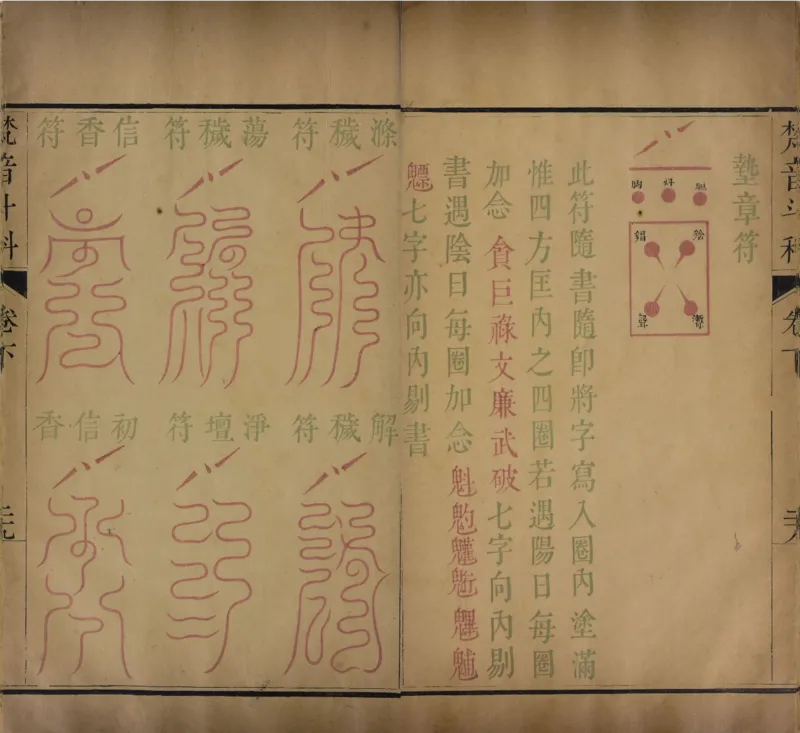 梵音斗科
卷下
墊章符
此符隨書隨即將字寫入圈內塗滿
惟四方匡內之四圈若遇陽日每圈
加念貪巨祿文廉武破七字向內剔
書遇陰日每圈加念魁
七字亦向內剔書
滌穢符
蕩穢符
信香符
解穢符
淨壇符
初信香
梵音斗科
卷下